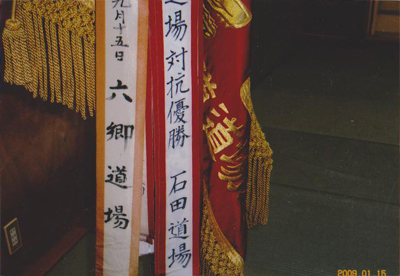 道場対抗優勝 石田道場
九月十五日 六郷道場
道
2009 01 15